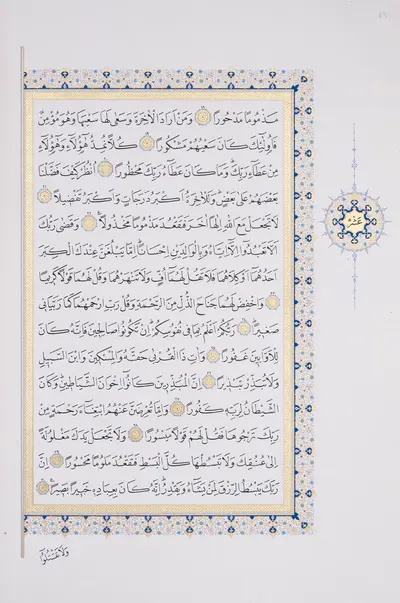 مَذْمُومًا مَدْحُورًا وَمَنْ اَرَادَ الْاٰخِرَةَ وَسَعٰى لَهَا سَعْيَهَا وَهُوَ مُؤْمِنٌ
فَاُولٰٓئِكَ كَانَ سَعْيُهُمْ مَشْكُورًا كُلًّا نُمِدُّ هٰٓؤُلَٓاءِ وَهٰٓؤُلَٓاءِ
مِنْ عَطَٓاءِ رَبِّكَ وَمَا كَانَ عَطَٓاءُ رَبِّكَ مَحْظُورًا اُنْظُرْ كَيْفَ فَضَّلْنَا
بَعْضَهُمْ عَلٰى بَعْضٍ وَلَلْاٰخِرَةُ اَكْبَرُ دَرَجَاتٍ وَاَكْبَرُ تَفْضِيلًا
لَا تَجْعَلْ مَعَ اللّٰهِ اِلٰهًا اٰخَرَ فَتَقْعُدَ مَذْمُومًا مَخْذُولًا وَقَضٰى رَبُّكَ
اَلَّا تَعْبُدُٓوا اِلَّٓا اِيَّاهُ وَبِالْوَالِدَيْنِ اِحْسَانًا اِمَّا يَبْلُغَنَّ عِنْدَكَ الْكِبَرَ
اَحَدُهُمَٓا اَوْ كِلَاهُمَا فَلَا تَقُلْ لَهُمَٓا اُفٍّ وَلَا تَنْهَرْهُمَا وَقُلْ لَهُمَا قَوْلًا كَرِيمًا
وَاخْفِضْ لَهُمَا جَنَاحَ الذُّلِّ مِنَ الرَّحْمَةِ وَقُلْ رَبِّ ارْحَمْهُمَا كَمَا رَبَّيَانِي
صَغِيرًا رَبُّكُمْ اَعْلَمُ بِمَا فِي نُفُوسِكُمْ اِنْ تَكُونُوا صَالِحِينَ فَاِنَّهُ كَانَ
لِلْاَوَّابِينَ غَفُورًا وَاٰتِ ذَا الْقُرْبٰى حَقَّهُ وَالْمِسْكِينَ وَابْنَ السَّبِيلِ
وَلَا تُبَذِّرْ تَبْذِيرًا اِنَّ الْمُبَذِّرِينَ كَانُٓوا اِخْوَانَ الشَّيَاطِينِ وَكَانَ
الشَّيْطَانُ لِرَبِّهِ كَفُورًا وَاِمَّا تُعْرِضَنَّ عَنْهُمُ ابْتِغَٓاءَ رَحْمَةٍ مِنْ
رَبِّكَ تَرْجُوهَا فَقُلْ لَهُمْ قَوْلًا مَيْسُورًا وَلَا تَجْعَلْ يَدَكَ مَغْلُولَةً
اِلٰى عُنُقِكَ وَلَا تَبْسُطْهَا كُلَّ الْبَسْطِ فَتَقْعُدَ مَلُومًا مَحْسُورًا اِنَّ
رَبَّكَ يَبْسُطُ الرِّزْقَ لِمَنْ يَشَٓاءُ وَيَقْدِرُ اِنَّهُ كَانَ بِعِبَادِهِ خَبِيرًا بَصِيرًا
عشر
وَلَا تَقْتُلُٓوا